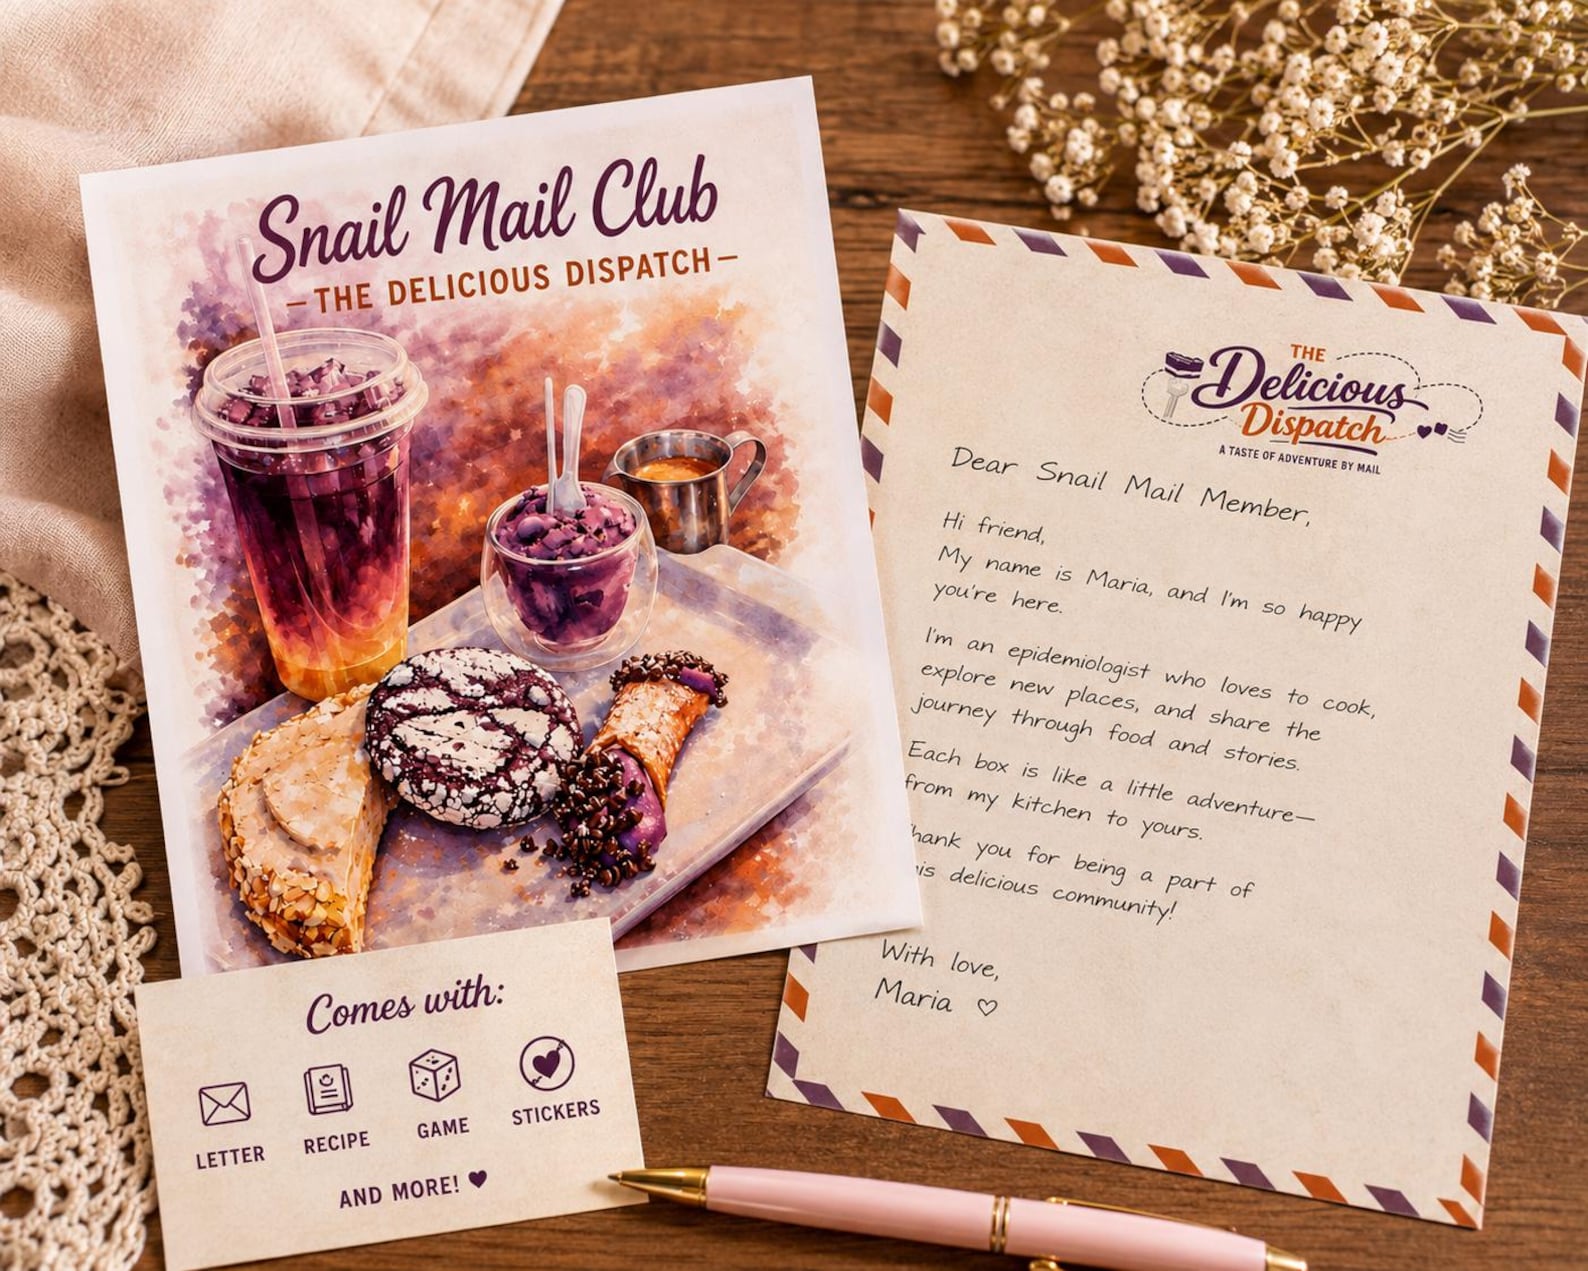 Snail Mail Club
– THE DELICIOUS DISPATCH –
THE
Delicious
Dispatch
A TASTE OF ADVENTURE BY MAIL
Dear Snail Mail Member,
Hi friend,
My name is Maria, and I'm so happy
you're here.
I'm an epidemiologist who loves to cook,
explore new places, and share the
journey through food and stories.
Each box is like a little adventure—
from my kitchen to yours.
hank you for being a part of
is delicious community!
With love,
Maria ♡
Comes with:
LETTER
RECIPE
GAME
STICKERS
AND MORE! ♥